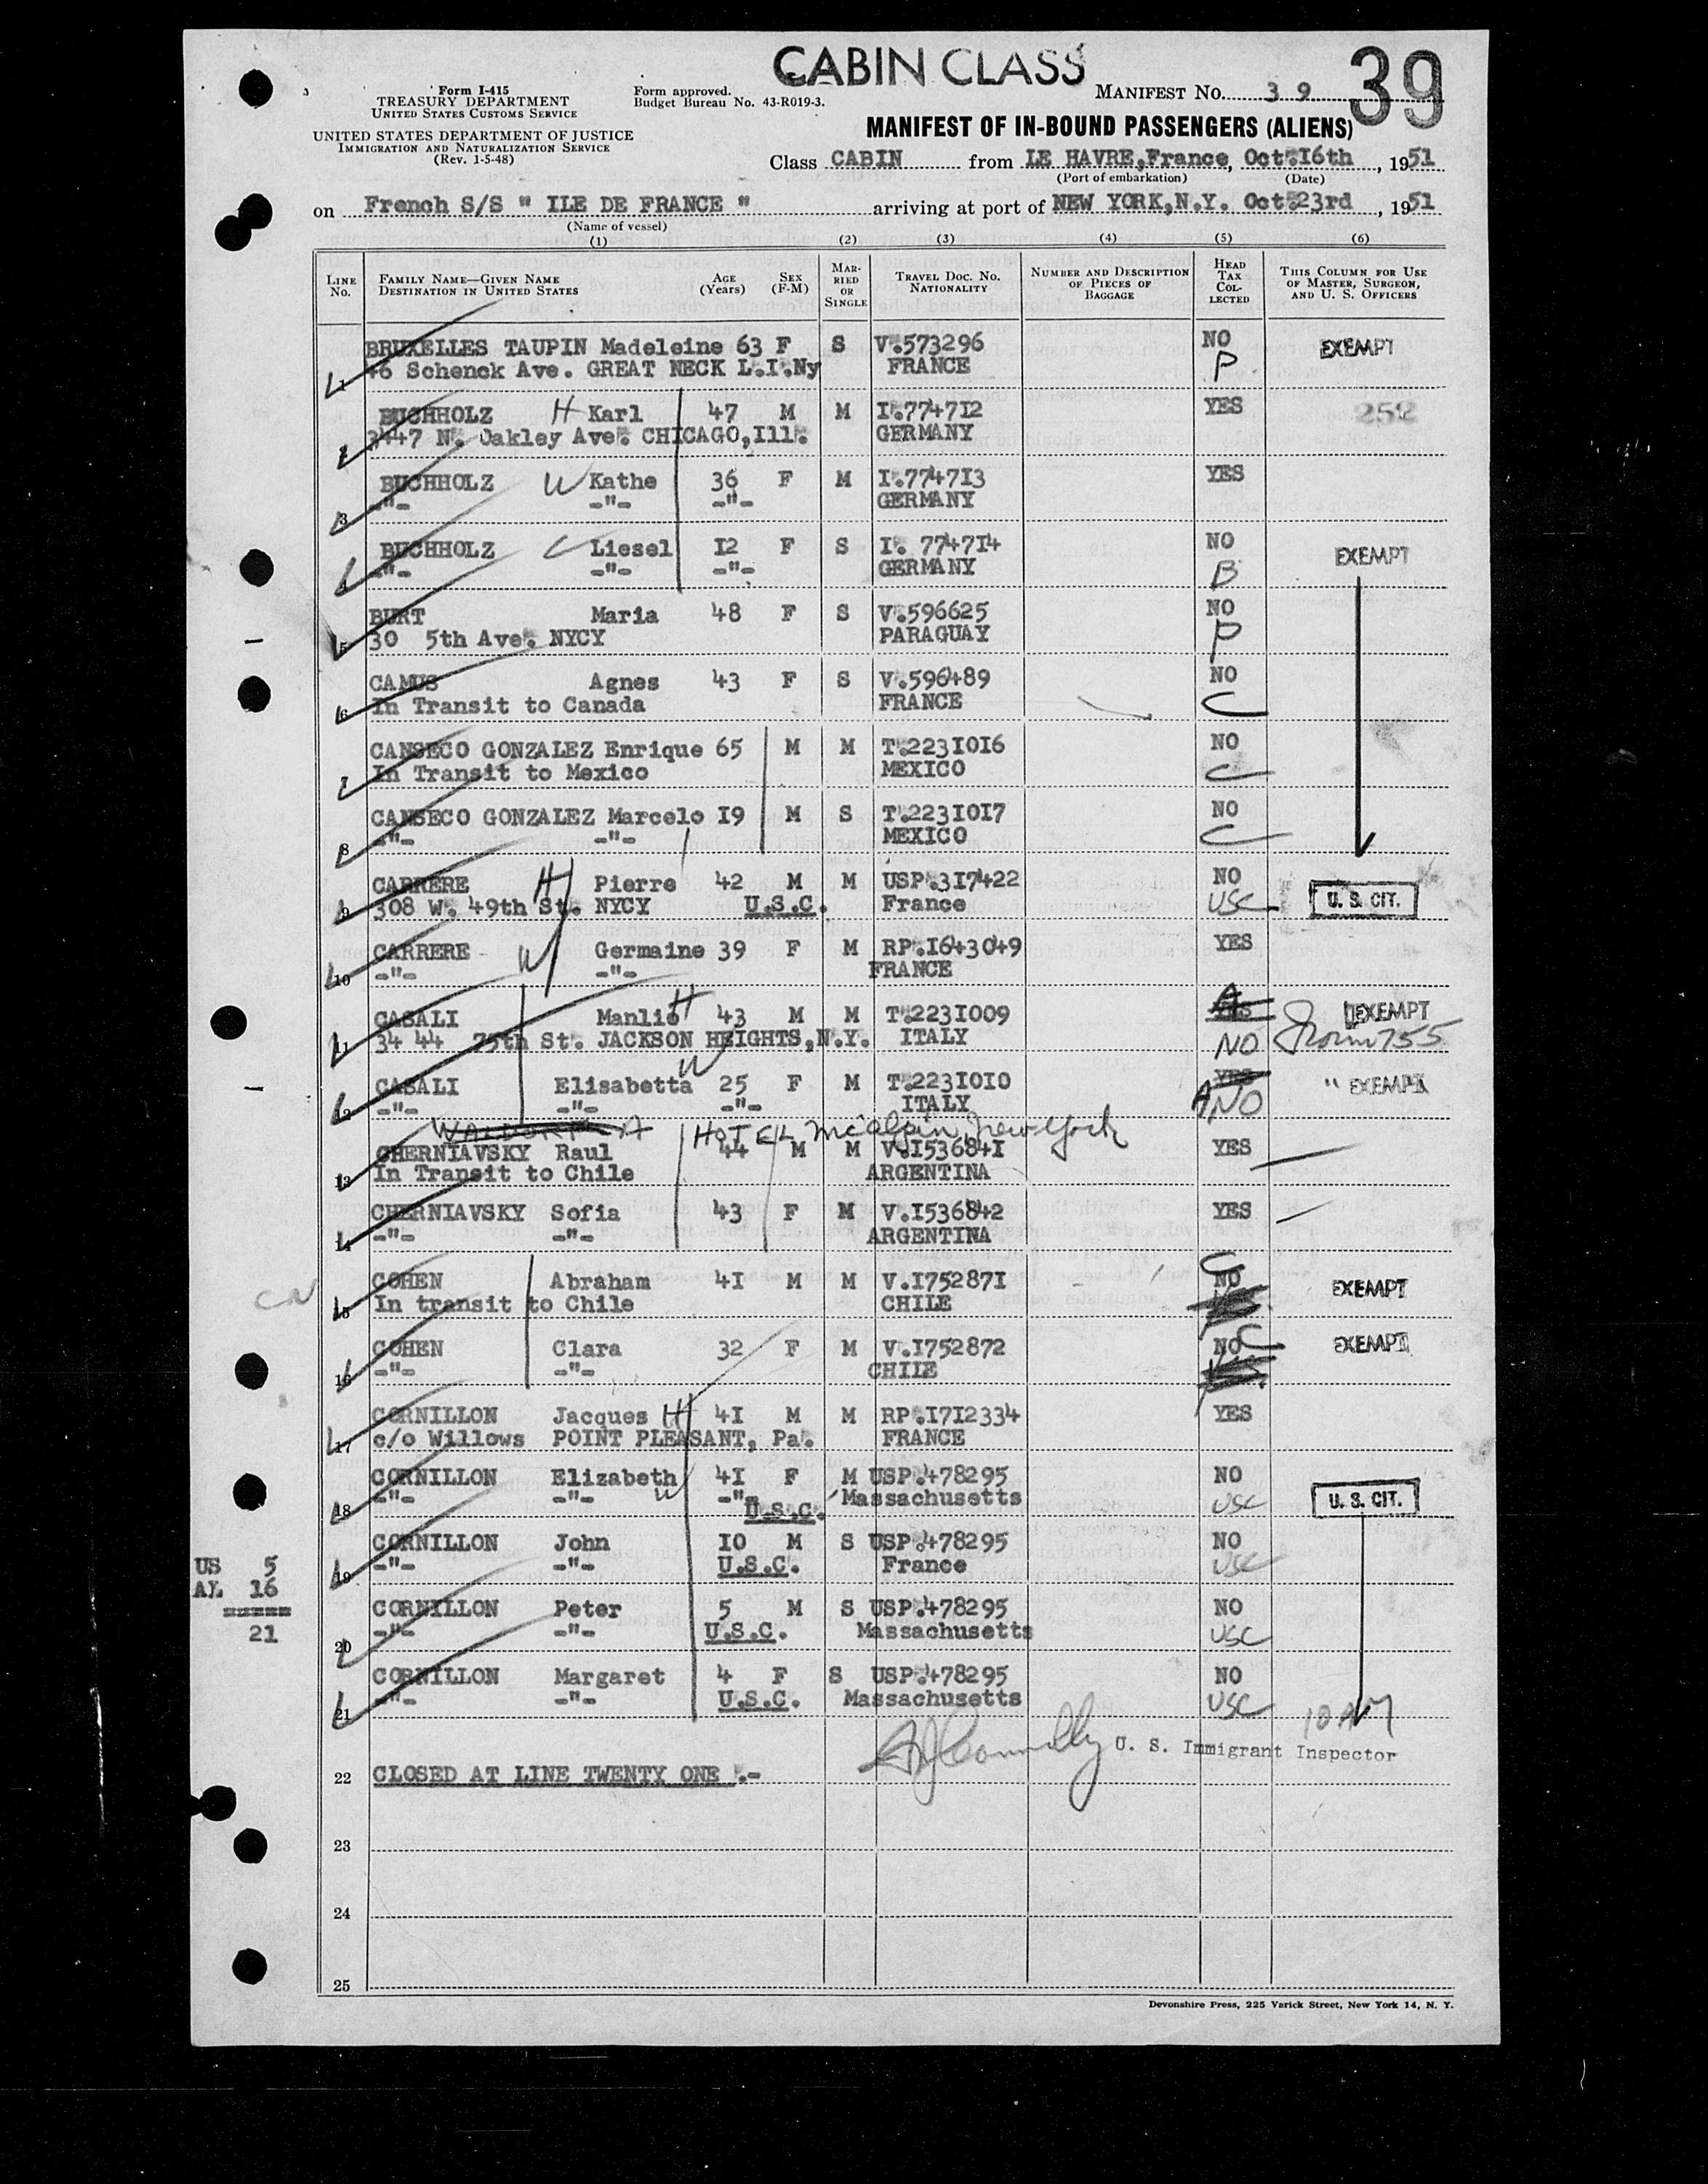 CABIN CLASS
39
Form I-415
TREASURY DEPARTMENT
UNITED STATES CUSTOMS SERVICE
UNITED STATES DEPARTMENT OF JUSTICE
IMMIGRATION AND NATURALIZATION SERVICE
(Rev. 1-5-48)
Form approved.
Budget Bureau No. 43-R019-3.
MANIFEST NO. 39
MANIFEST OF IN-BOUND PASSENGERS (ALIENS)
Class CABIN from LE HAVRE, France, Oct. 16th, 1951
(Port of embarkation) (Date)
on French S/S " ILE DE FRANCE " arriving at port of NEW YORK, N.Y. Oct. 23rd, 1951
(Name of vessel)
(1) (2) (3) (4) (5) (6)
LINE NO. FAMILY NAME—GIVEN NAME DESTINATION IN UNITED STATES AGE (Years) SEX (F-M) MARRIED OR SINGLE TRAVEL DOC. NO. NATIONALITY NUMBER AND DESCRIPTION OF PIECES OF BAGGAGE HEAD TAX COLLECTED THIS COLUMN FOR USE OF MASTER, SURGEON, AND U. S. OFFICERS
BRUXELLES TAUPIN Madeleine 63 F S V.573296 NO EXEMPT
1 46 Schenck Ave. GREAT NECK L.I.Ny FRANCE P
BUCHHOLZ H Karl 47 M M I.774712 YES 252
2 3447 N. Oakley Ave. CHICAGO, Ill. GERMANY
BUCHHOLZ W Kathe 36 F M I.774713 YES
3 -"- -"- -"- GERMANY
BUCHHOLZ C Liesel 12 F S I. 774714 NO EXEMPT
4 -"- -"- -"- GERMANY B
BURT Maria 48 F S V.596625 NO
5 30 5th Ave. NYCY PARAGUAY P
CAMUS Agnes 43 F S V.596489 NO
6 In Transit to Canada FRANCE C
CANSECO GONZALEZ Enrique 65 M M T.2231016 NO
7 In Transit to Mexico MEXICO C
CANSECO GONZALEZ Marcelo 19 M S T.2231017 NO
8 -"- -"- MEXICO C
CARRERE H Pierre 42 M M USP.317422 NO
9 308 W. 49th St. NYCY U.S.C. France USC U. S. CIT.
CARRERE W Germaine 39 F M RP.1643049 YES
10 -"- -"- FRANCE
CASALI Manlio H 43 M M T.2231009 A YES EXEMPT
11 34 44 75th St. JACKSON HEIGHTS, N.Y. ITALY NO Form 755
CASALI Elisabetta W 25 F M T.2231010 YES " EXEMPT
12 -"- -"- -"- ITALY A NO
HOTEL McAlpin, New York
CHERNIAVSKY Raul 44 M M V.1536841 YES
13 In Transit to Chile ARGENTINA
CHERNIAVSKY Sofia 43 F M V.1536842 YES
14 -"- -"- ARGENTINA
COHEN Abraham 41 M M V.1752871 C NO EXEMPT
15 In transit to Chile CHILE
COHEN Clara 32 F M V.1752872 NO C EXEMPT
16 -"- -"- CHILE
CORNILLON Jacques H 41 M M RP.1712334 YES
17 c/o Willows POINT PLEASANT, Pa. FRANCE
CORNILLON Elizabeth 41 F M USP.478295 NO
18 -"- -"- W -"- U.S.C. Massachusetts USC U. S. CIT.
CORNILLON John 10 M S USP.478295 NO
19 -"- -"- U.S.C. France USC
CORNILLON Peter 5 M S USP.478295 NO
20 -"- -"- U.S.C. Massachusetts USC
CORNILLON Margaret 4 F S USP.478295 NO
21 -"- -"- U.S.C. Massachusetts USC
US 5
AL 16
=====
21
10 AM
Connolly U. S. Immigrant Inspector
22 CLOSED AT LINE TWENTY ONE .-
23
24
25
Devonshire Press, 225 Varick Street, New York 14, N. Y.